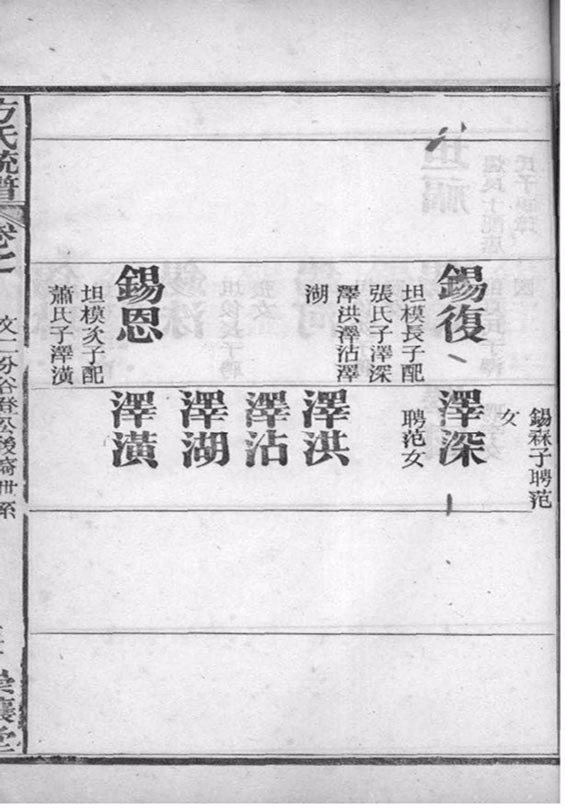 錫霖子聘范
女
錫復
坦模長子配
張氏子澤深
澤洪澤沾澤
湖
錫恩
坦模次子配
蕭氏子澤潢
澤深
聘范女
澤洪
澤沾
澤湖
澤潢
方氏統譜
卷七
文二份谷登公後裔世系